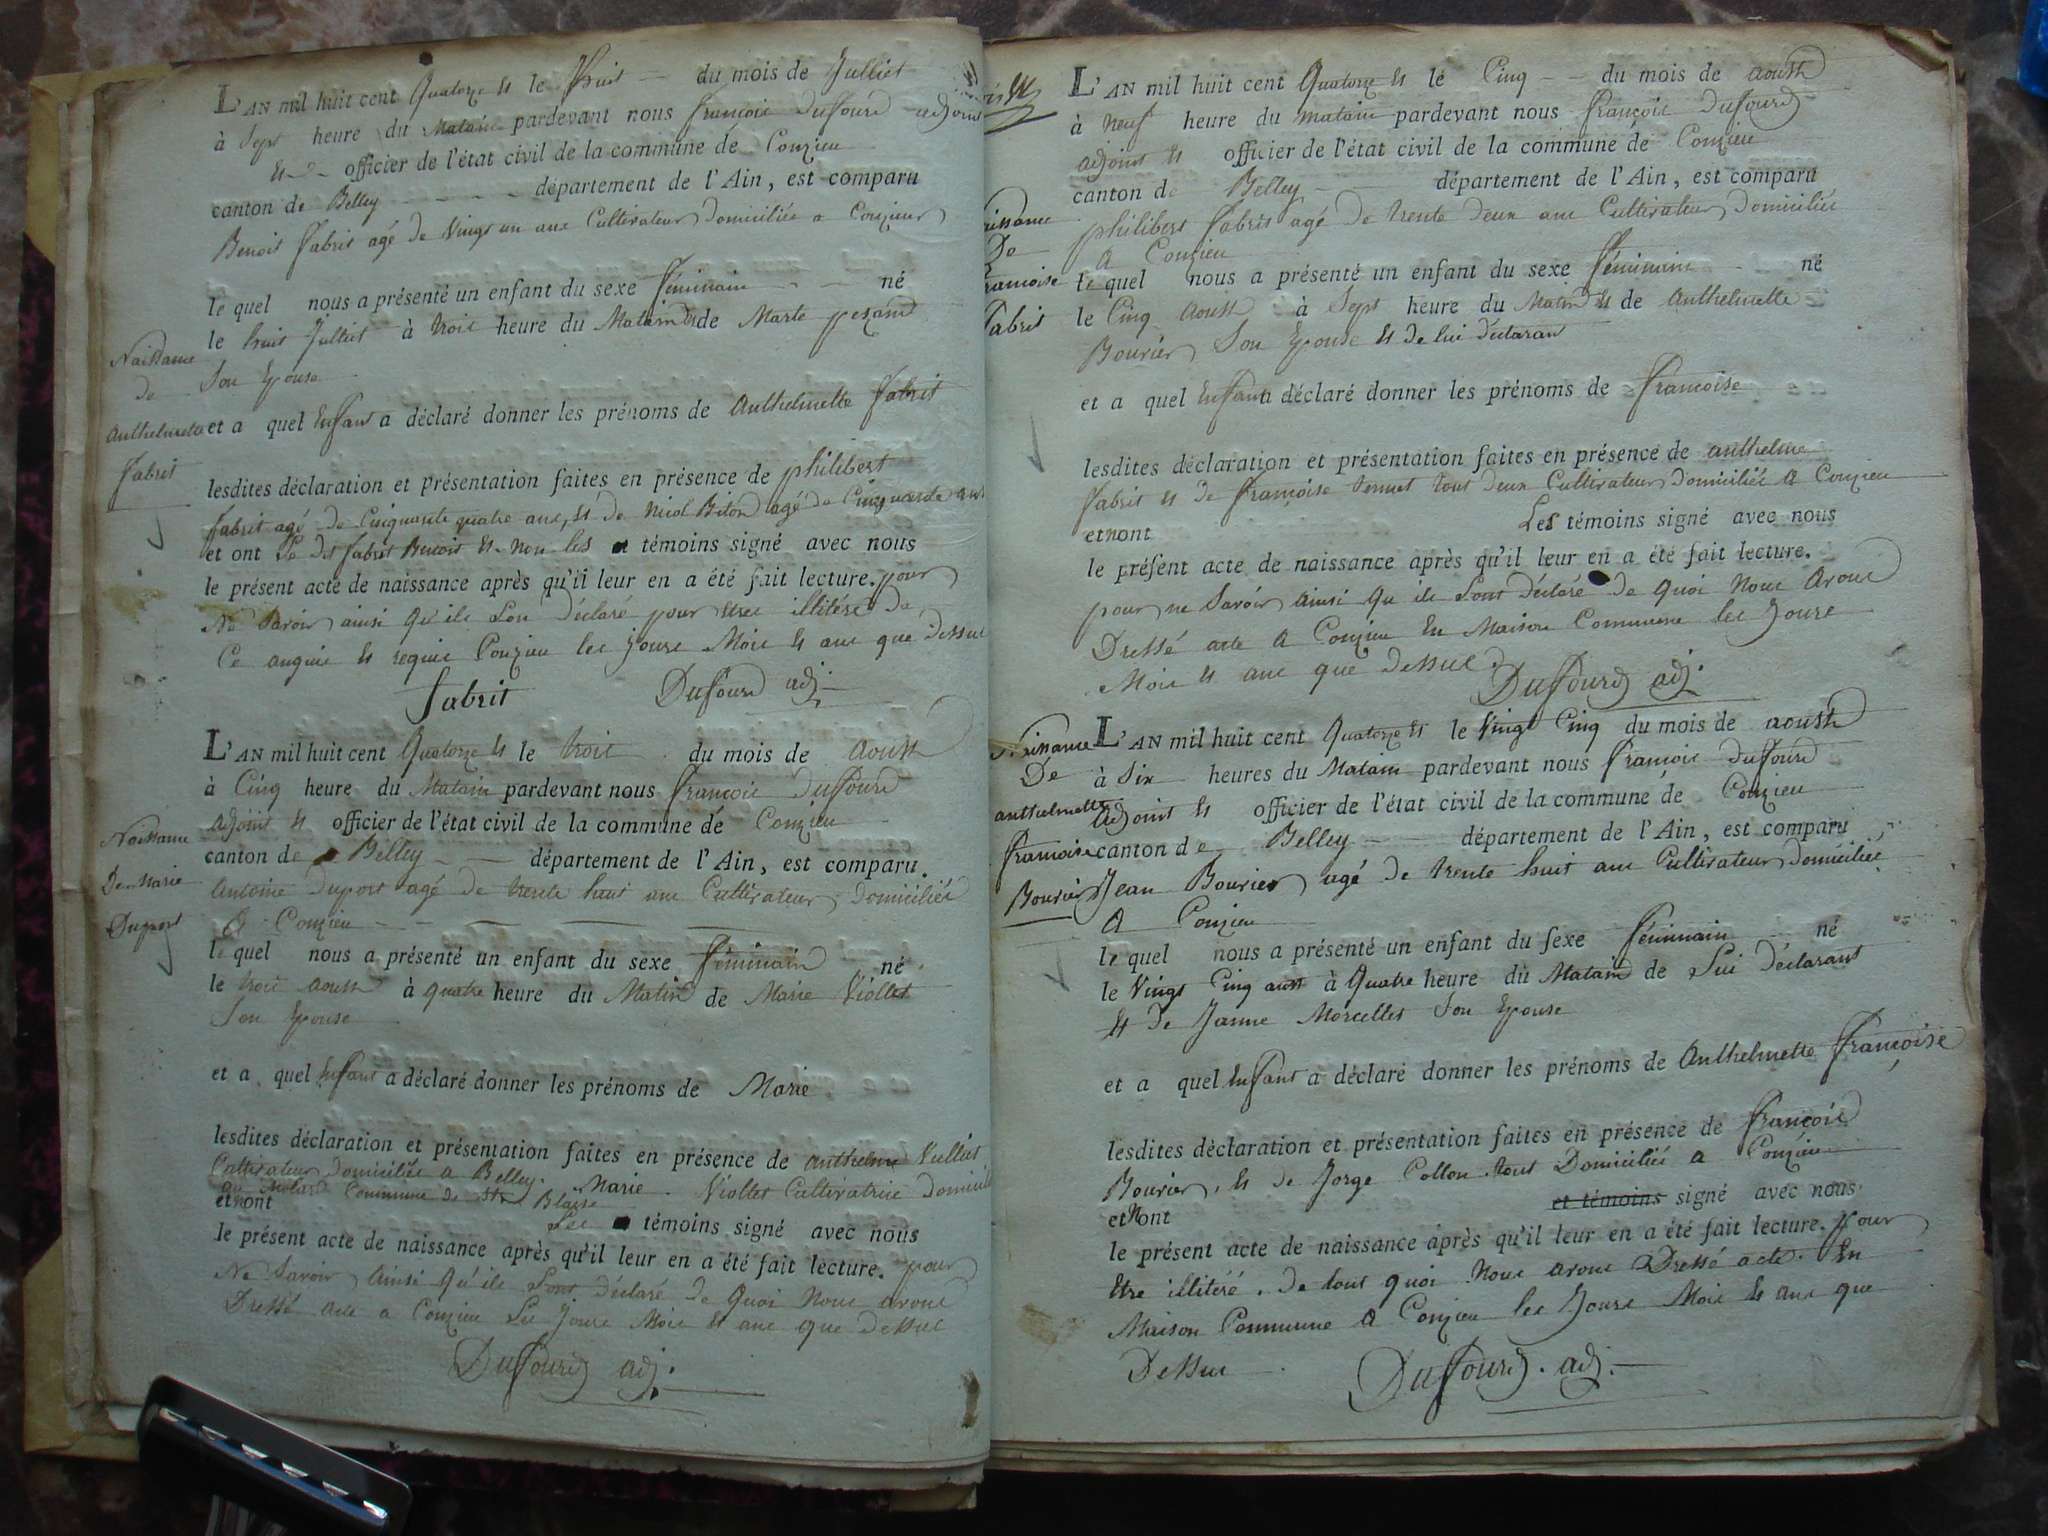 L'AN mil huit cent Quatorze et le huit du mois de Julliet
à Sept heure du Matain pardevant nous françois Duffourd adjoint
et officier de l'état civil de la commune de Conzieu
canton de Belley département de l'Ain, est comparu
Benoit fabrit agé de vingt un ans Cultivateur Domiciliée a Conzieu
le quel nous a présenté un enfant du sexe féminain né
le huit Julliet à trois heure du Matain de Marte
Son Epouse
et a quel Enfant a déclaré donner les prénoms de Anthelmette fabrit
lesdites déclaration et présentation faites en présence de philibert
fabrit agé de Cinquante quatre ans, et de Nicol Biton agé de Cinquante ans
et ont Le dit fabrit Benoit et non les témoins signé avec nous
le présent acte de naissance après qu'il leur en a été fait lecture. pour
Ne Savoir ainsi qu'ils Lon déclaré pour etres illitéré de
Ce anquis et requis Conzieu les jours Mois et ans que dessus
fabrit Duffourd adj.
Naissance
de
Anthelmette
fabrit
L'AN mil huit cent Quatorze et le trois du mois de aoust
à Cinq heure du Matain pardevant nous françois Duffourd
adjoint et officier de l'état civil de la commune de Conzieu
canton de Belley département de l'Ain, est comparu.
Antoine Duport agé de trente huit ans Cultivateur Domiciliée
a Conzieu
le quel nous a présenté un enfant du sexe féminain né
le trois aoust à quatre heure du Matin de Marie Viollet
Son Epouse
et a quel Enfant a déclaré donner les prénoms de Marie
lesdites déclaration et présentation faites en présence de anthelme Vuillet
Cultivateur Domiciliée a Belley. Marie Viollet Cultivatrice Domicilié
au Molard Commune de St Blaise
et nont Les témoins signé avec nous
le présent acte de naissance après qu'il leur en a été fait lecture. pour
Ne Savoir Ainsi qu'ils Lont déclaré De Quoi Nous avons
Dressé acte a Conzieu Les Jours Mois et ans que Dessus
Duffourd adj.
Naissance
De Marie
Duport
L'AN mil huit cent Quatorze et le Cinq du mois de aoust
à Neuf heure du matain pardevant nous françois Duffourd
adjoint et officier de l'état civil de la commune de Conzieu
canton de Belley département de l'Ain, est comparu
philibert fabrit agé de trente deux ans Cultivateur Domiciliée
a Conzieu
le quel nous a présenté un enfant du sexe féminain né
le Cinq Aoust à Sept heure du Matin et de Anthelmette
Bourier Son Epouse et de lui déclaran
et a quel Enfant a déclaré donner les prénoms de françoise
lesdites déclaration et présentation faites en présence de anthelme
fabrit et de françoise tous deux Cultivateur Domiciliée a Conzieu
et nont Les témoins signé avec nous
le présent acte de naissance après qu'il leur en a été fait lecture.
pour ne Savoir Ainsi qu ils Lont déclaré de quoi Nous Avons
Dressé acte a Conzieu En Maison Commune les Jours
Mois et ans que dessus
Duffourd adj.
aissance
De
rancoise
fabrit
L'AN mil huit cent Quatorze et le vingt Cinq du mois de aoust
à Six heures du Matain pardevant nous françois Duffourd
adjoint et officier de l'état civil de la commune de Conzieu
canton de Belley département de l'Ain, est comparu
Jean Bourier agé de trente huit ans Cultivateur Domiciliée
a Conzieu
le quel nous a présenté un enfant du sexe féminain né
le vingt Cinq aust à Quatre heure du Matain de Lui déclarant
et De Janne Morcellet Son Epouse
et a quel Enfant a déclaré donner les prénoms de Anthelmette françoise
lesdites déclaration et présentation faites en présence de françois
Bourier, et de Jorge Collon tous Domiciliée a Conzieu
et nont et témoins signé avec nous
le présent acte de naissance après qu'il leur en a été fait lecture. pour
Etre illitéré. de tout quoi Nous avons Dressé acte. En
Maison Commune a Conzieu les Jours Mois et ans que
Dessus Duffourd. adj.
Naissance
De
anthelmette
françoise
Bourier